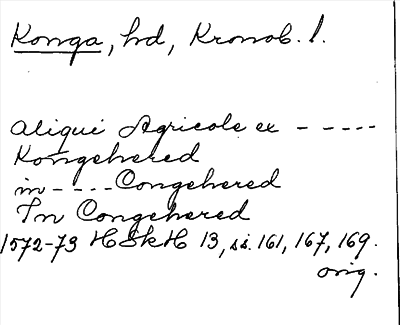 Konga, hd, Kronob. l.
Aliqui Agricole ex - - - - -
Kongehered
in - - - - Congehered
In Congehered
1572-73 HSkH 13, ss. 161, 167, 169.
orig.